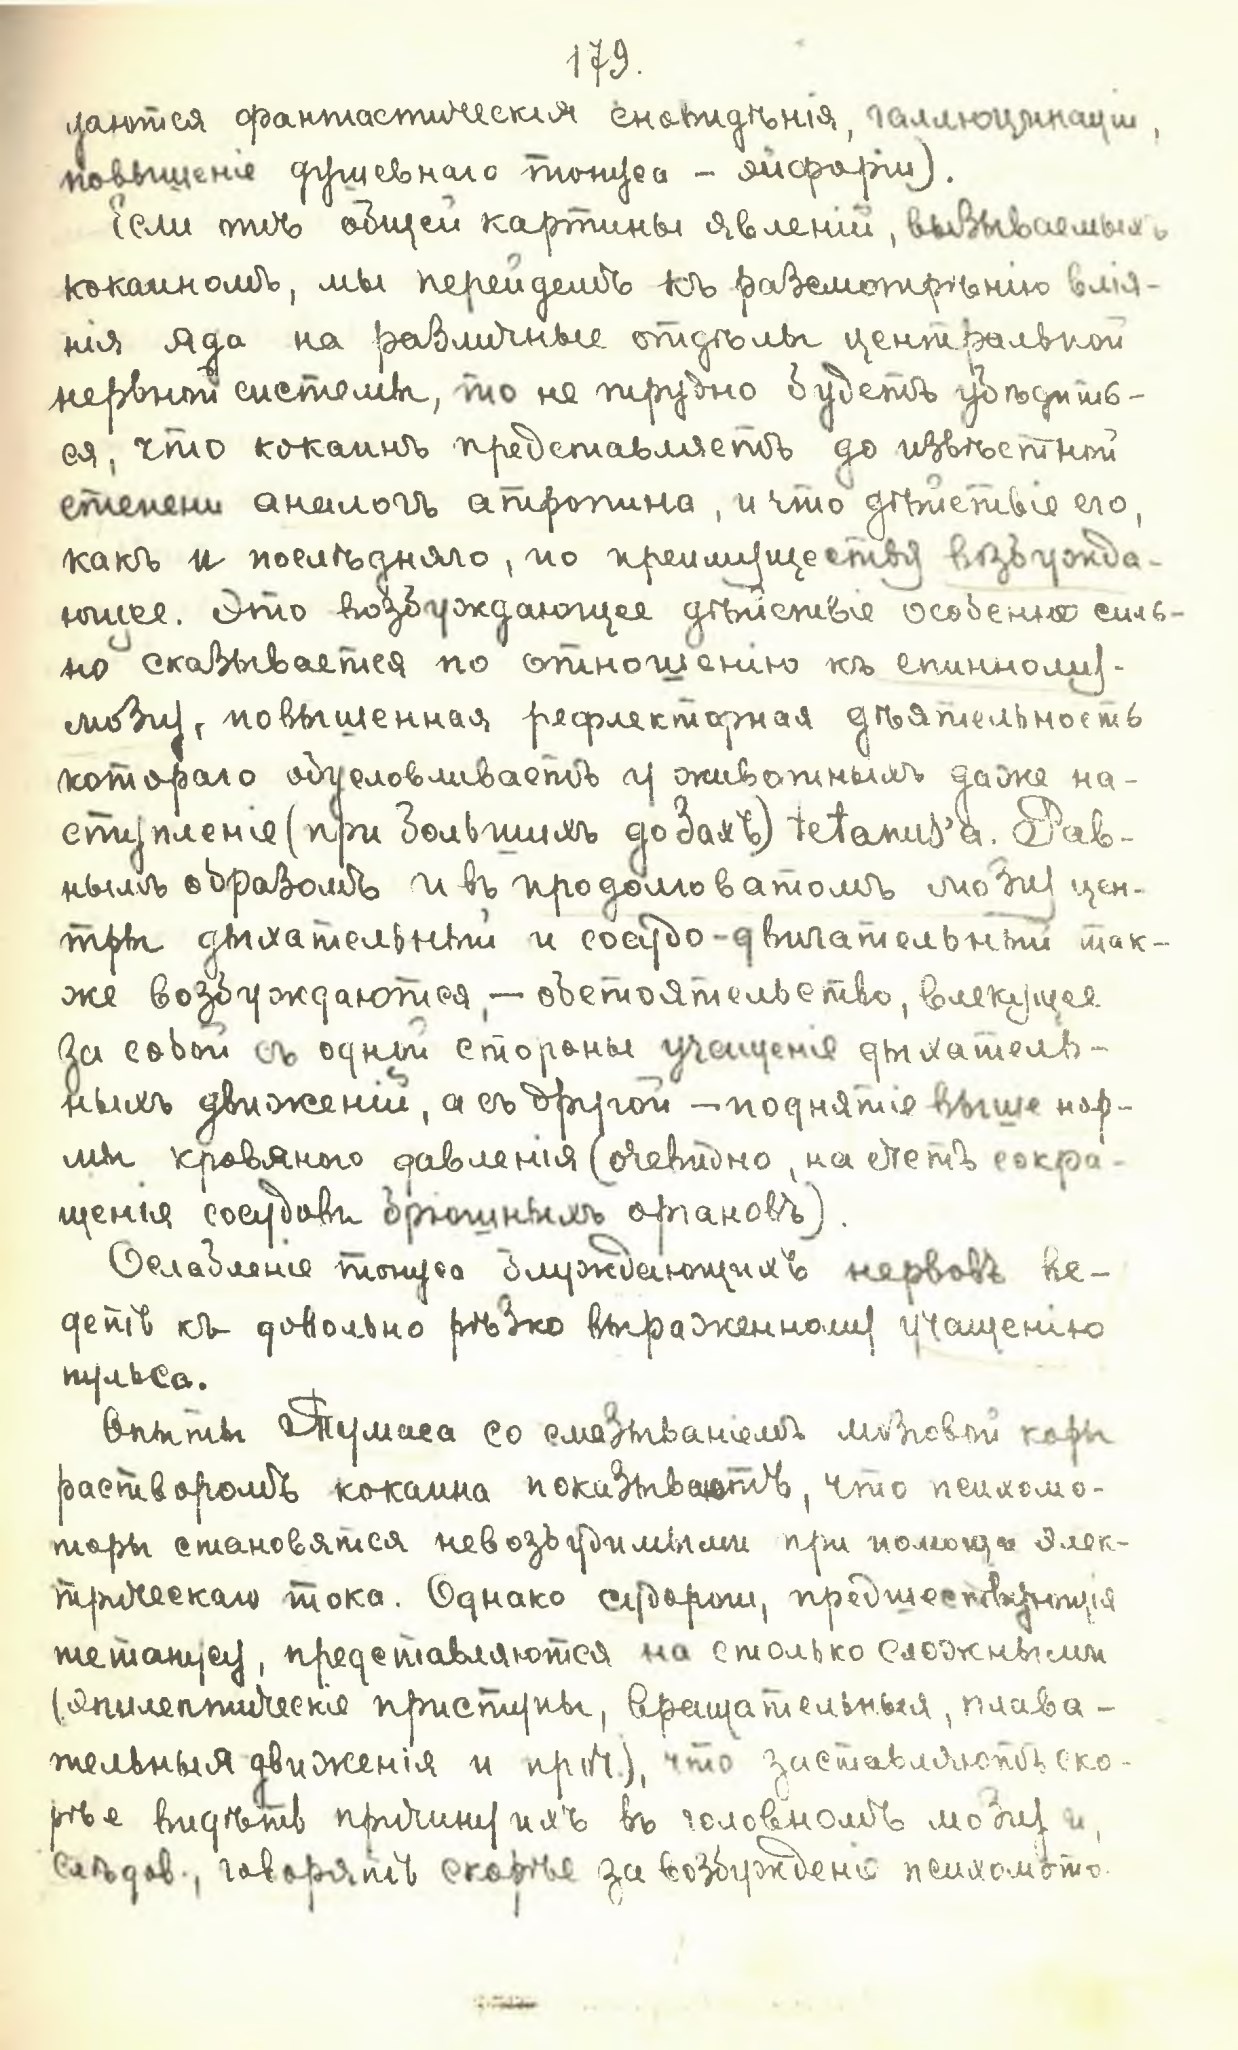 179.
цаются фантастическія сновидѣнія, галлюцинаціи,
повышеніе душевнаго тонуса – эйфорія).
Если отъ общей картины явленій, вызываемыхъ
кокаиномъ, мы перейдемъ къ разсмотрѣнію влія-
нія яда на различные отдѣлы центральной
нервной системы, то не трудно будетъ убѣдить-
ся, что кокаинъ представляетъ до извѣстной
степени аналогъ атропина, и что дѣйствіе его,
какъ и послѣдняго, по преимуществу возбужда-
ющее. Это возбуждающее дѣйствіе особенно силь-
но сказывается по отношенію къ спинному
мозгу, повышенная рефлекторная дѣятельность
котораго обусловливаетъ у животныхъ даже на-
ступленіе (при большихъ дозахъ) tetanus'а. Рав-
нымъ образомъ и въ продолговатомъ мозгу цен-
тры дыхательный и сосудо-двигательный так-
же возбуждаются, – обстоятельство, влекущее
за собой съ одной стороны учащеніе дыхатель-
ныхъ движеній, а съ другой – поднятіе выше нор-
мы кровяного давленія (очевидно, на счетъ сокра-
щенія сосудовъ брюшныхъ органовъ).
Ослабленіе тонуса блуждающихъ нервовъ ве-
детъ къ довольно рѣзко выраженному учащенію
пульса.
Опыты Тумаса со смазываніемъ мозговой коры
растворомъ кокаина показываютъ, что психомо-
торы становятся невозбудимыми при помощи элек-
трическаго тока. Однако судороги, предшествующія
тетанусу, представляются на столько сложными
(эпилептическіе приступы, вращательныя, плава-
тельныя движенія и проч.), что заставляютъ ско-
рѣе видѣть причину ихъ въ головномъ мозгу и,
слѣдов., говорятъ скорѣе за возбужденіе психомото-